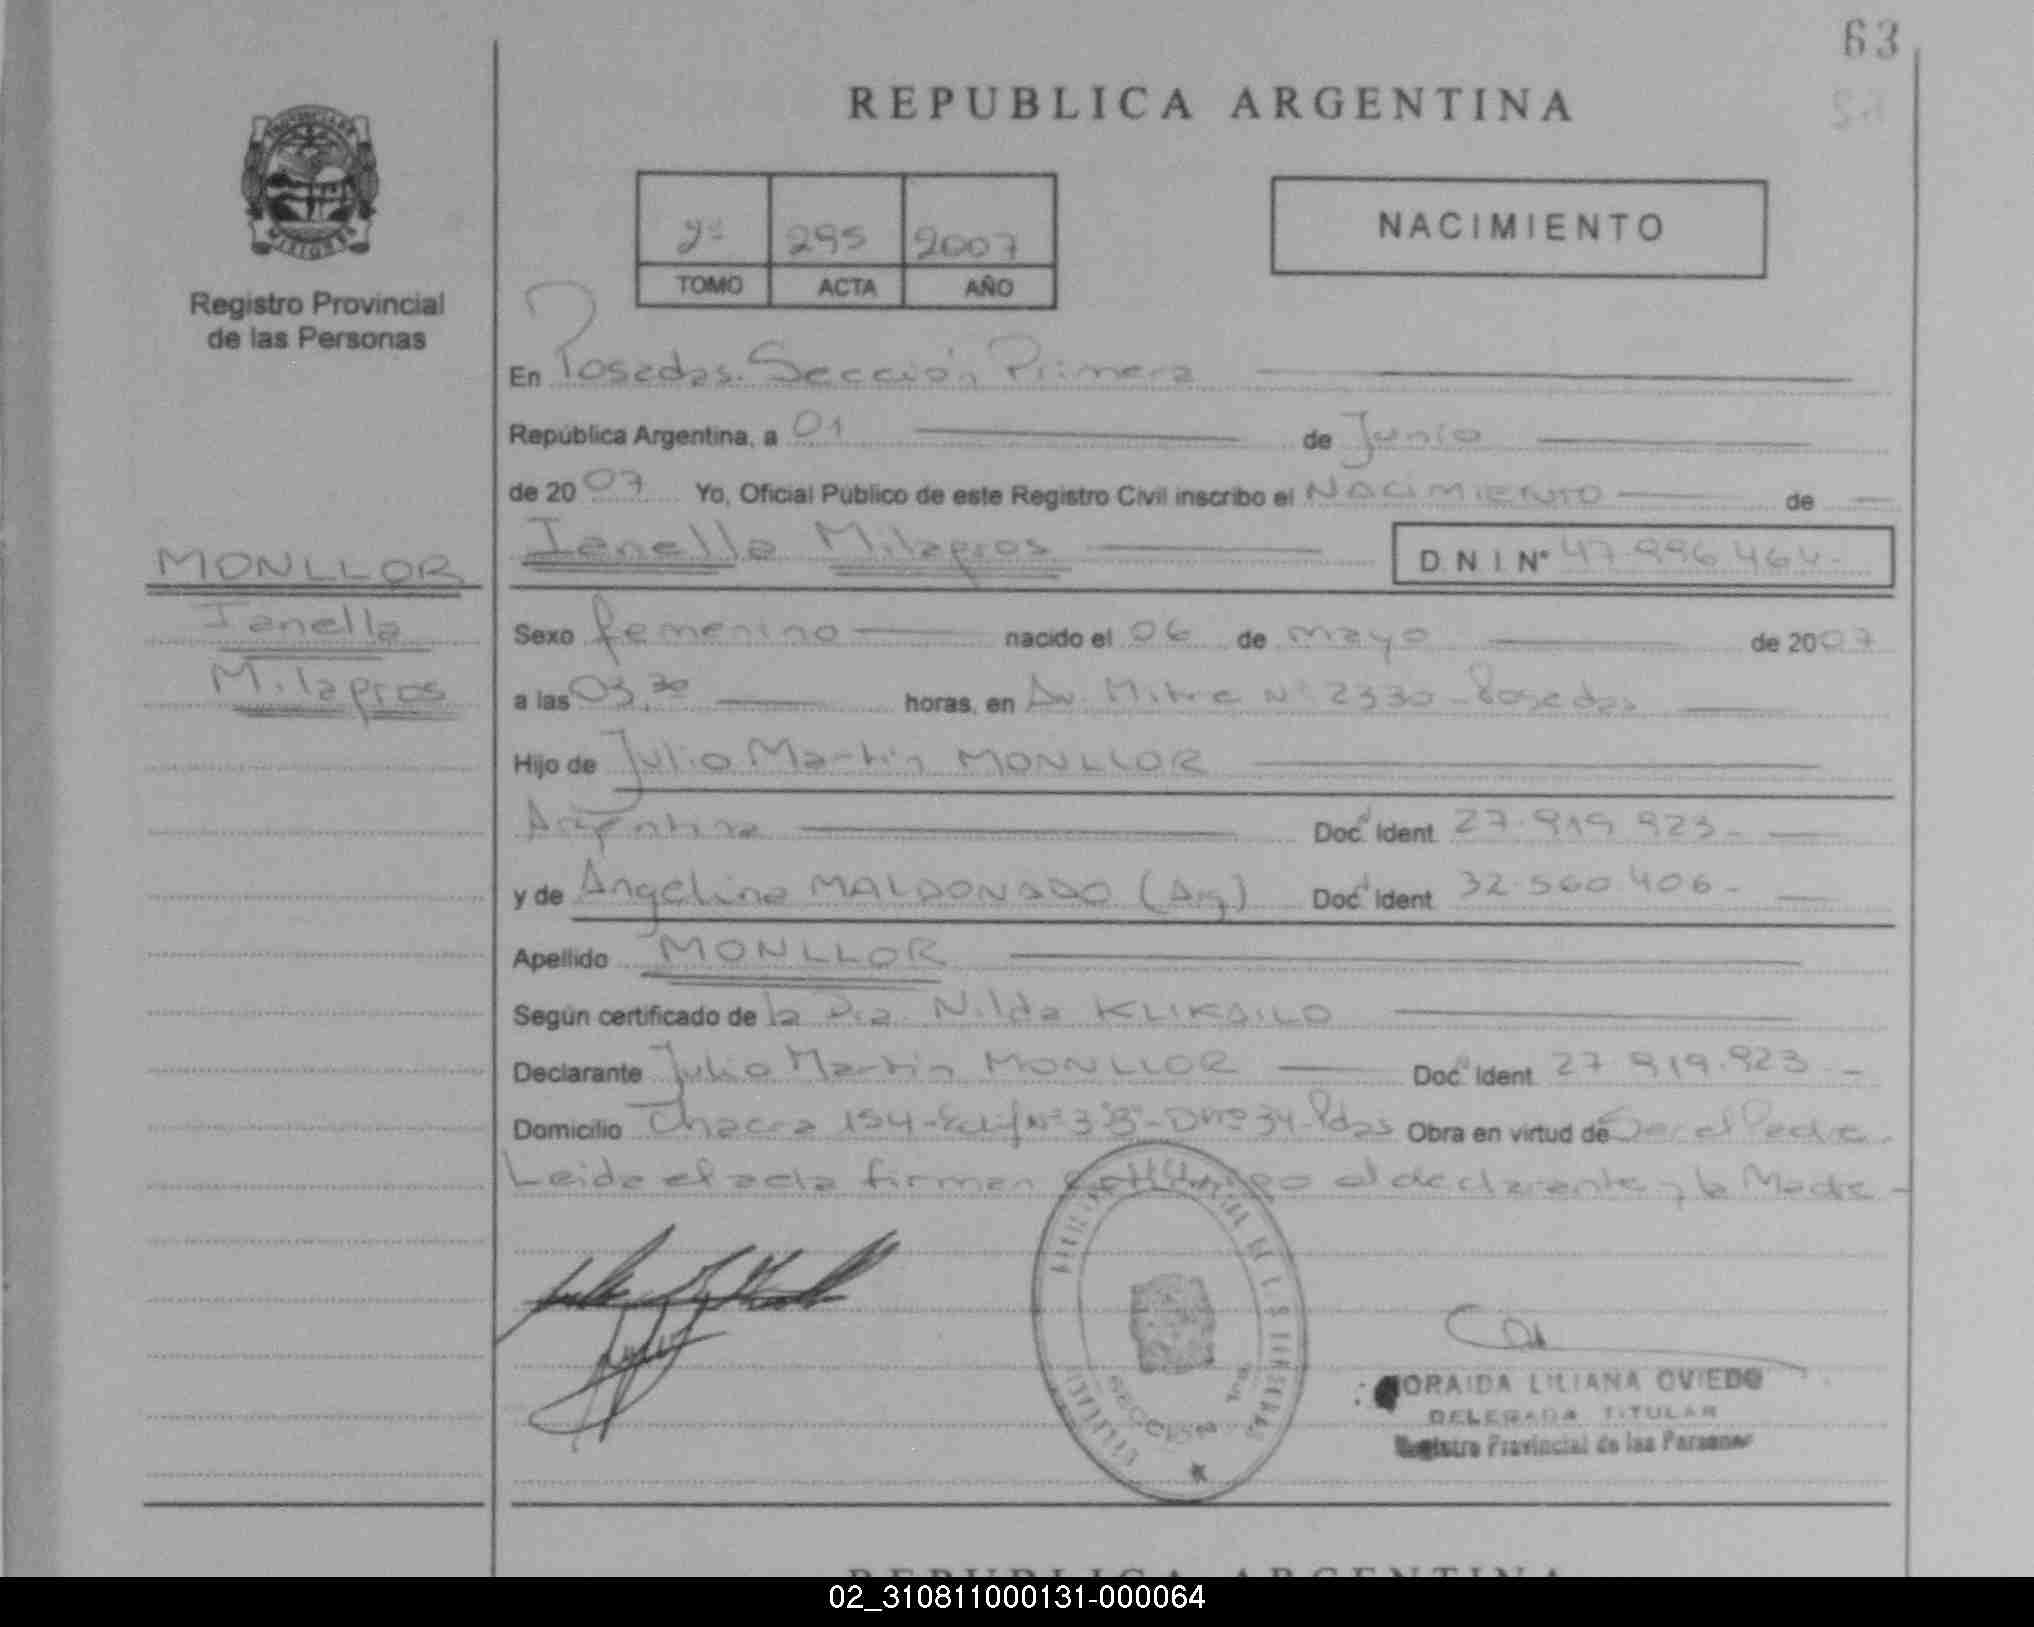 63
REPUBLICA ARGENTINA
PROVINCIA DE
MISIONES
Registro Provincial
de las Personas
295 2007
TOMO ACTA AÑO
NACIMIENTO
En Posadas. Sección Primera
República Argentina, a 01 de Junio
de 2007 Yo, Oficial Público de este Registro Civil inscribo el NACIMIENTO de
Ianella Milagros D.N.I. Nº 47.996.464.-
MONLLOR
Ianella
Milagros
Sexo femenino nacido el 06 de mayo de 2007
a las 03,30 horas, en Av. Mitre Nº 2330 - Posadas
Hijo de Julio Martin MONLLOR
Argentina Doc. Ident. 27.919.923.-
y de Angelina MALDONADO (Arg) Doc. Ident. 32.560.406.-
Apellido MONLLOR
Según certificado de la Dra. Nilda KLIKAILO
Declarante Julio Martin MONLLOR Doc. Ident. 27.919.923.-
Domicilio Chacra 154-Edif Nº 3"B"-Dto 34-Pdas Obra en virtud de Ser el Padre.
Leida el acta firman conmigo el declarante y la Madre-
SECCION 1ra.
ZORAIDA LILIANA OVIEDO
DELEGADA TITULAR
Registro Provincial de las Personas
REPUBLICA ARGENTINA
02_310811000131-000064